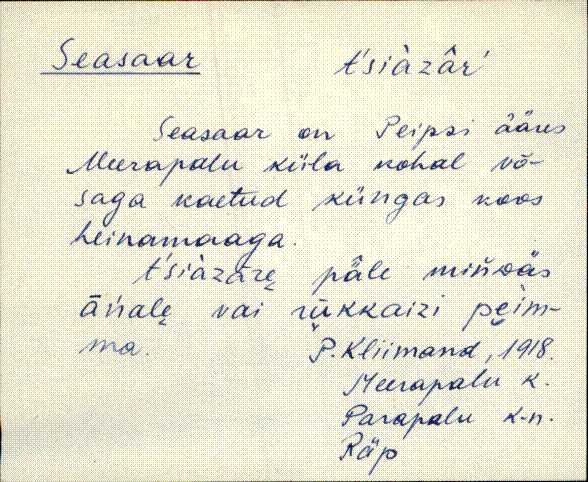 Seasaar t'siàzâr'
Seasaar on Peipsi ääres
Meerapalu küla kohal võ-
saga kaetud küngas koos
heinamaaga.
t'siàzārę pâle miñwäs
āńalę vai rükkaizi pęim-
ma. P. Kliimand, 1918.
Meerapalu k.
Parapalu k-n.
Räp